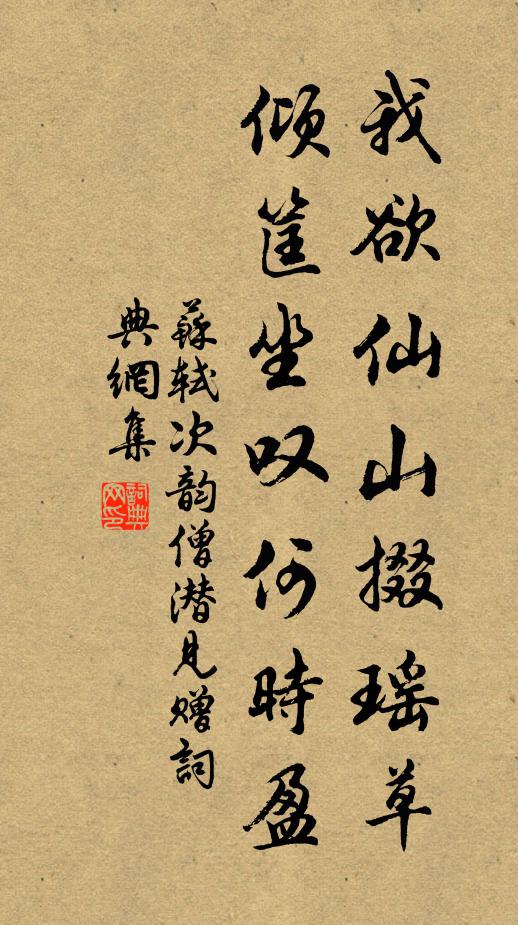 我欲仙山掇瑶草
倾筐坐叹何時盈
蘇轼次韵僧潜見赠詞
典網集
詞典网印